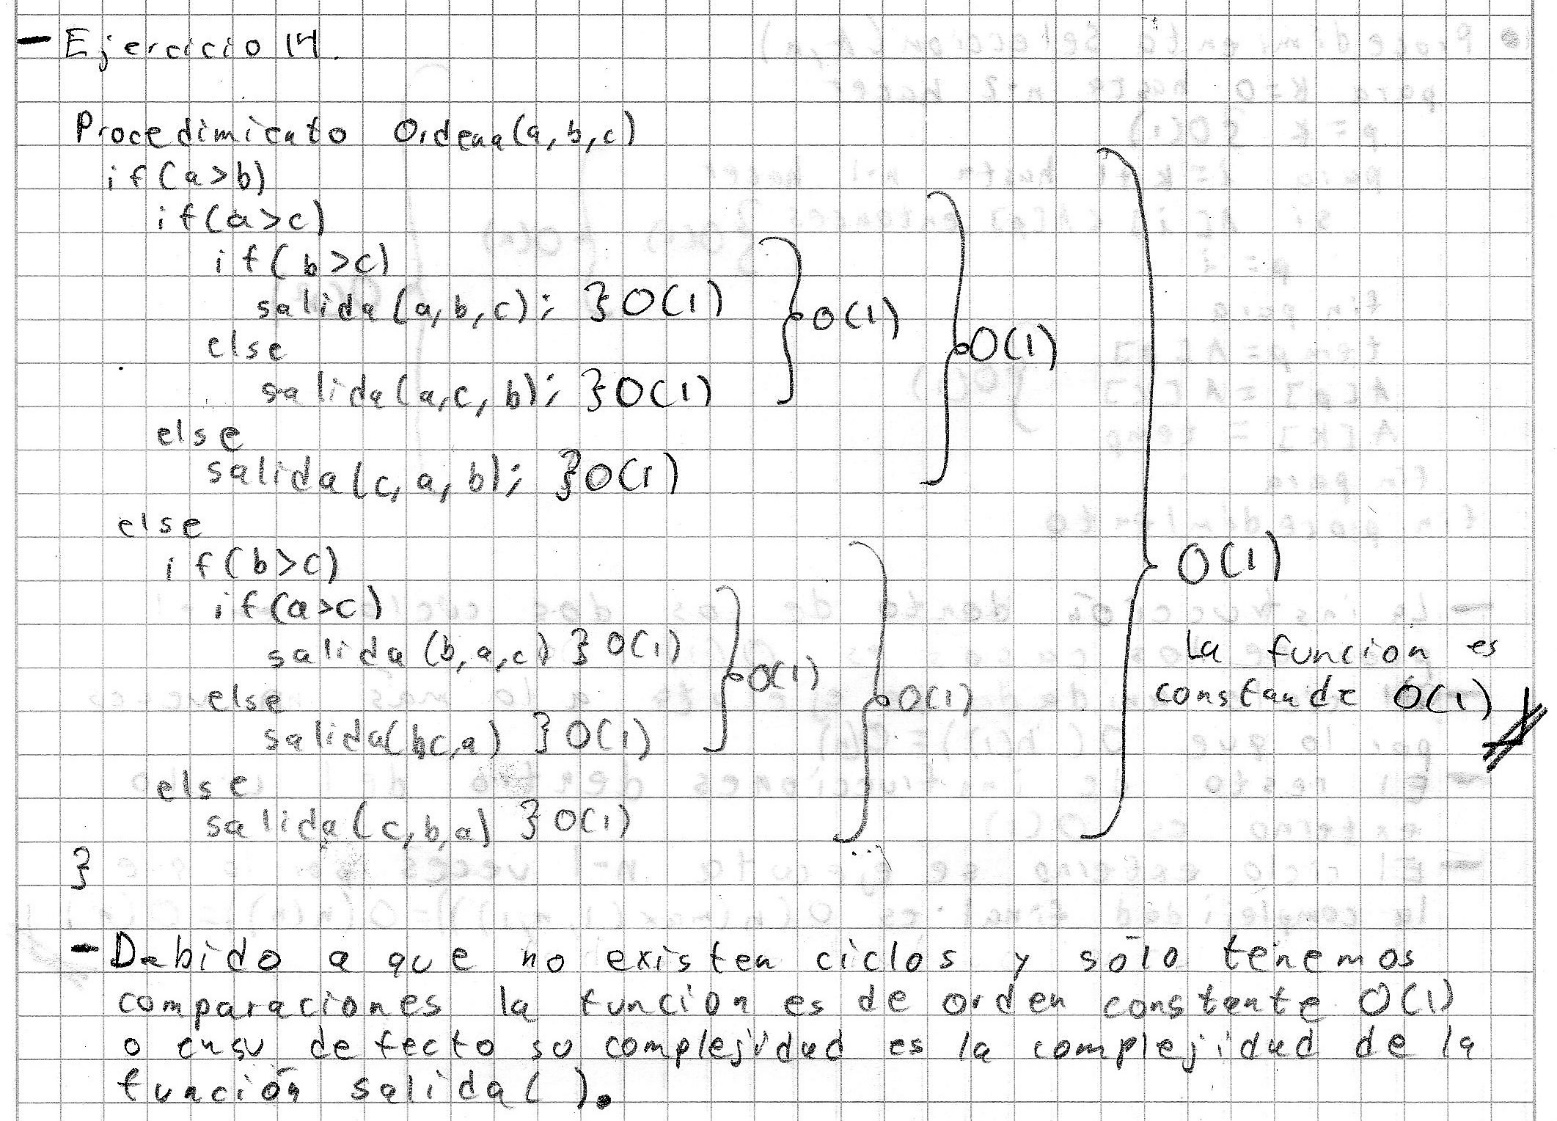 - Ejercicio 14.
Procedimiento Ordena(a,b,c)
if(a>b)
if(a>c)
if(b>c)
salida(a,b,c); } O(1) } O(1) } O(1)
else
salida(a,c,b); } O(1)
else
salida(c,a,b); } O(1)
else
if(b>c)
if(a>c)
salida(b,a,c) } O(1) } O(1) } O(1)
else
salida(b c,a) } O(1)
else
salida(c,b,a) } O(1)
}
} O(1)
La función es
constande O(1)
- Debido a que no existen ciclos y sólo tenemos
comparaciones la función es de orden constante O(1)
o ensu defecto su complejidad es la complejidad de la
función salida( ).